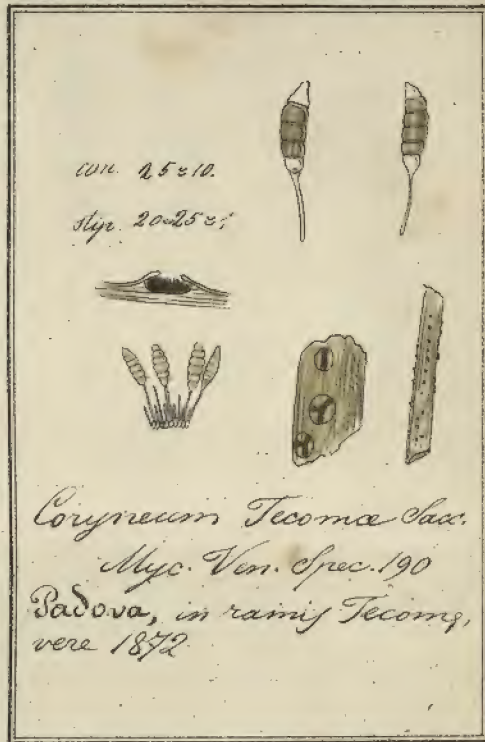 con. 25 ≈ 10.
stip. 20-25 ≈
Coryneum Tecomæ Sacc.
Myc. Ven. Spec. 190
Padova, in ramis Tecomæ,
vere 1872